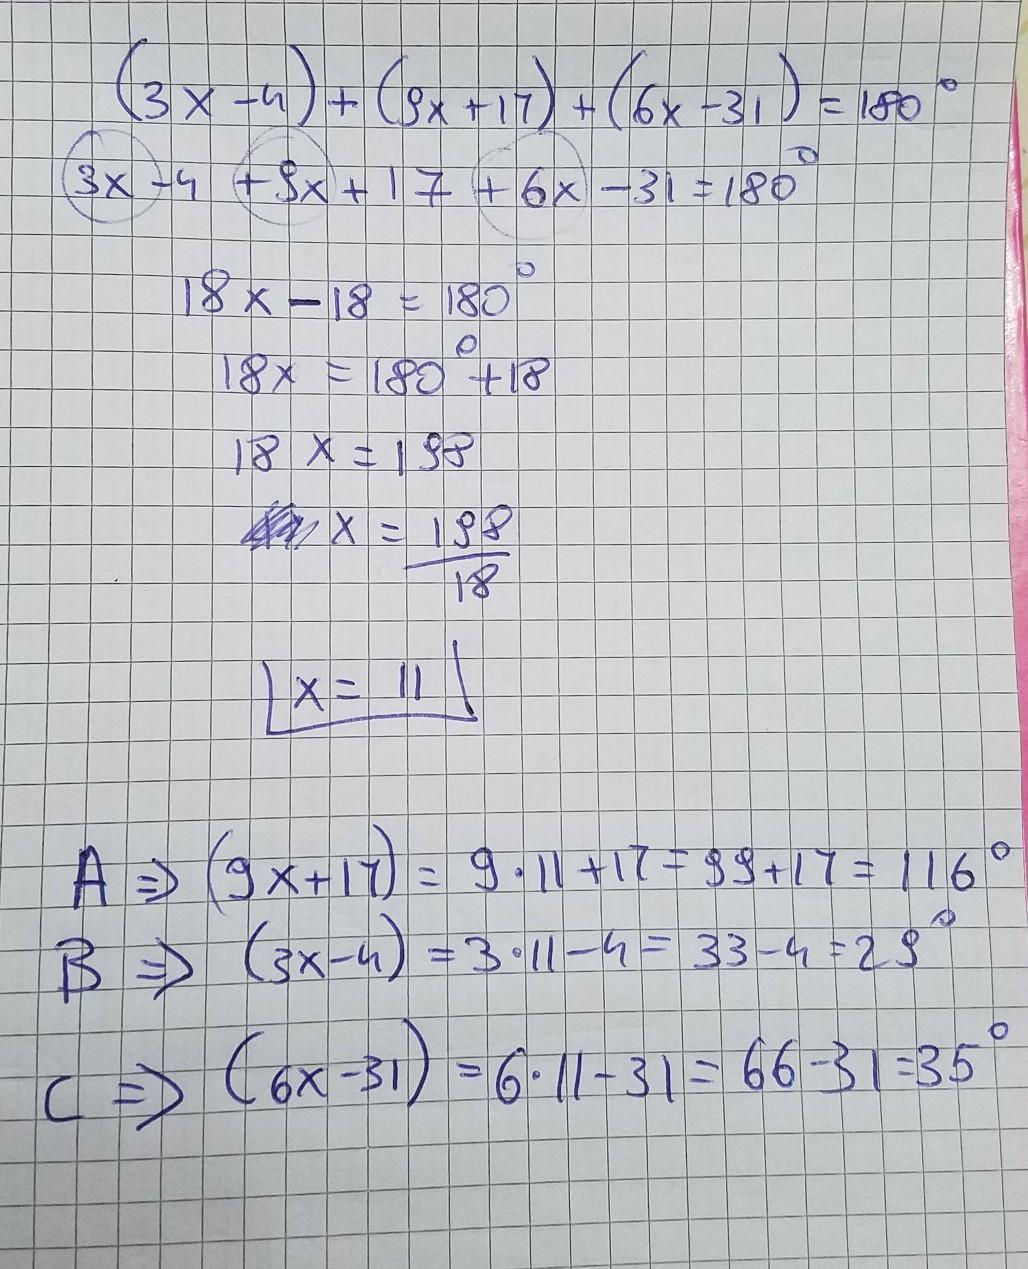 (3x-4)+(9x+17)+(6x-31)=180°
3x-4+9x+17+6x-31=180°
18x-18=180°
18x=180°+18
18x=198
x=198/18
x=11
A⇒(9x+17)=9·11+17=99+17=116°
B⇒(3x-4)=3·11-4=33-4=29°
C⇒(6x-31)=6·11-31=66-31=35°